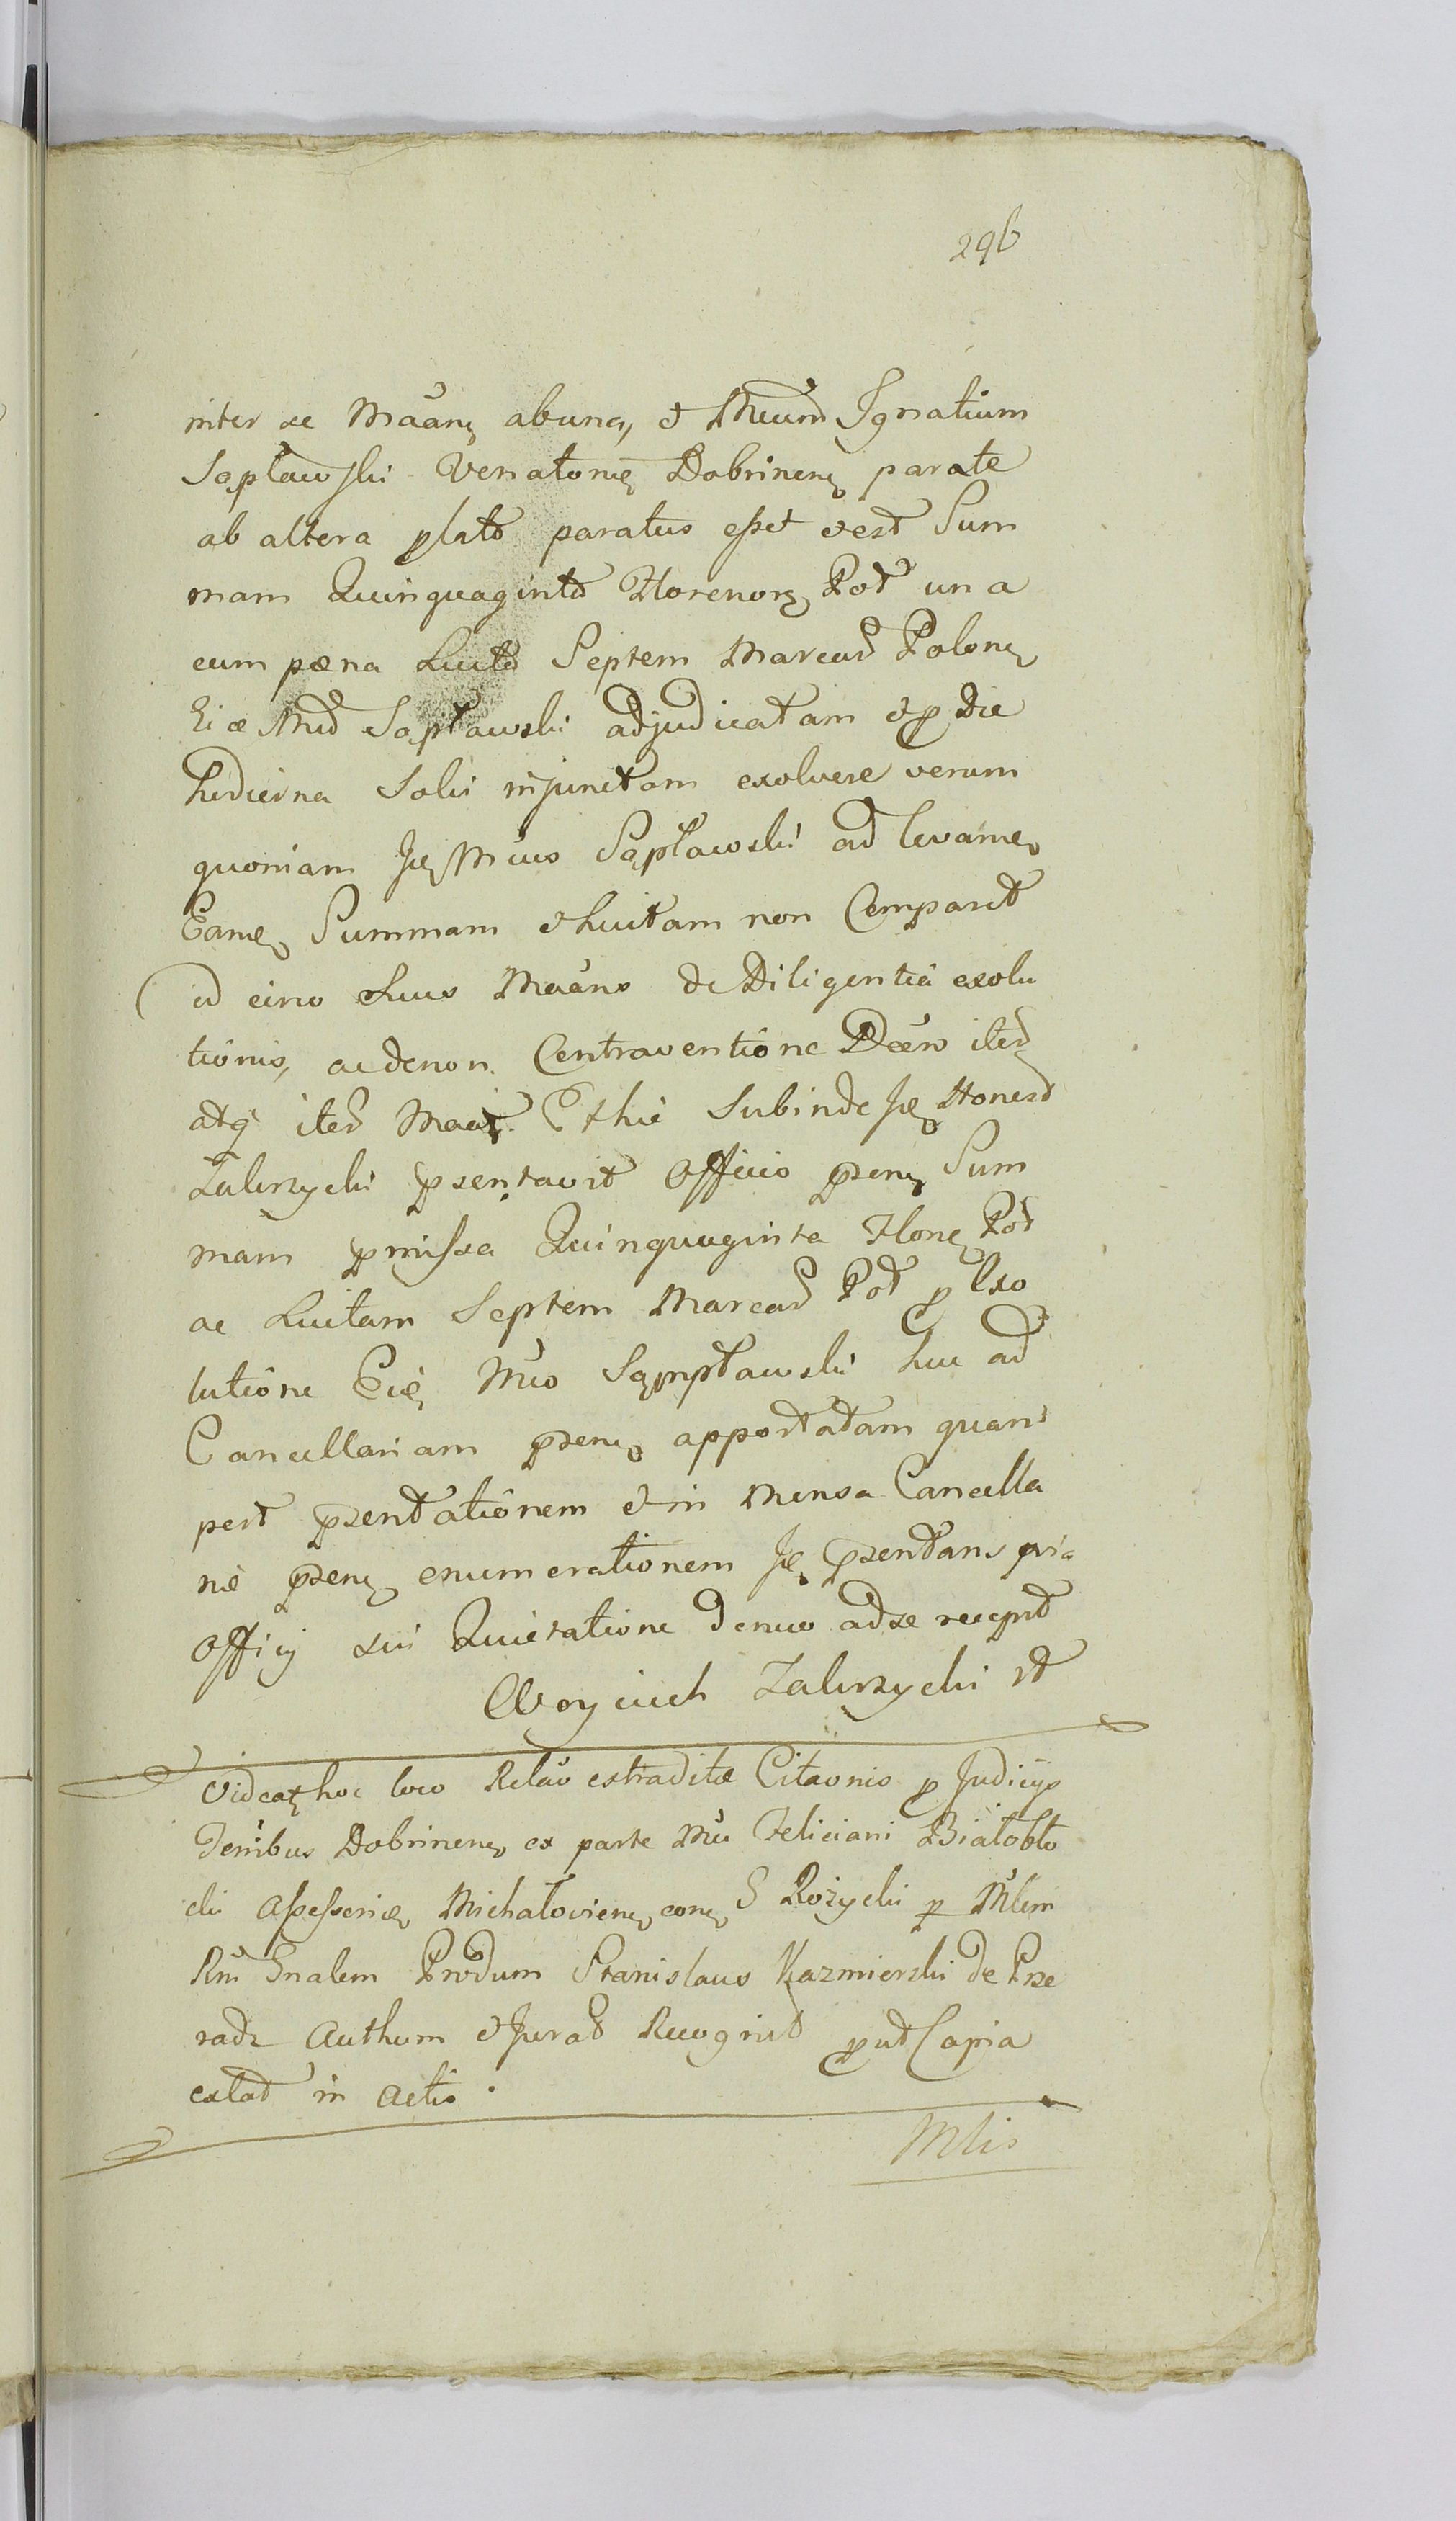 296
inter se Māanę ab una, et Mcum Ignatium
Sąpławski Venatorię Dobrinenę parate
ab altera plato paratus esset est Sum
mam Quinquaginta Florenorę Pol una
cum pæna Luita Septem Marcas Polonę
Eiæ Mco Sąpławski adjudicatam et p Die
hodierna Solvi injunctam exolvere verum
quoniam Ję Mcus Sąpławski ad levamę
Eamę Summam et luitam non Comparet
id eirco Māans de Diligentia exolu
tionis, ac de non Contraventione Decro iteȓ
atq iteȓ Maat. Et hic Subinde Ję Honest
Zakrzycki psentavit Officio psenę Sum
mam pmissa Quinquaginta Flonę Pol
ac Luitam Septem Marcas Pol p Exo
lutione Eię Mco Sąmpławski huc ad
Cancellariam psenę apportatam quam
post psentationem et in Mensa Cancella
riæ psenę enumerationem Ję psentans pvia
Officij sui Quietatione denuo ad se recepit
Woyciech Zakrzycki
Videatę hoc loco Relao extraditæ Citaonis p Judicijs
Tenibus Dobrinenę ex parte Mci Feliciani Białobło
cki Assessoriæ Michałovienę conę G Rożycki p Mlem
Rni Gnalem Produm Stanislaus Kazmierski de Prze
radz Authum et Jurat Recognit put Copia
extat in Actis.
Mlis